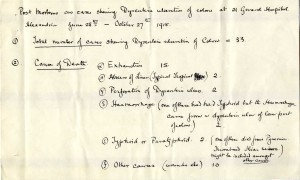 Post Mortems on cases showing Dysenteric ulceration of colon at 21 General Hospital
Alexandria June 28th - October 27th 1915.
① Total number of cases showing Dysenteric ulceration of Colon = 33.
② Causes of Death ① Exhaustion 15
② Abscess of Liver (Typical Tropical) 2
③ Perforation of Dysenteric ulcer 2
④ Haemorrhage (one of these had had Typhoid but the Haemorrhage
came from a dysenteric ulcer of lower part
of colon) 2
⑤ Typhoid or Paratyphoid. 2 (one of these died from
might be included amongst
other cases
⑥ Other causes (wounds etc) 10